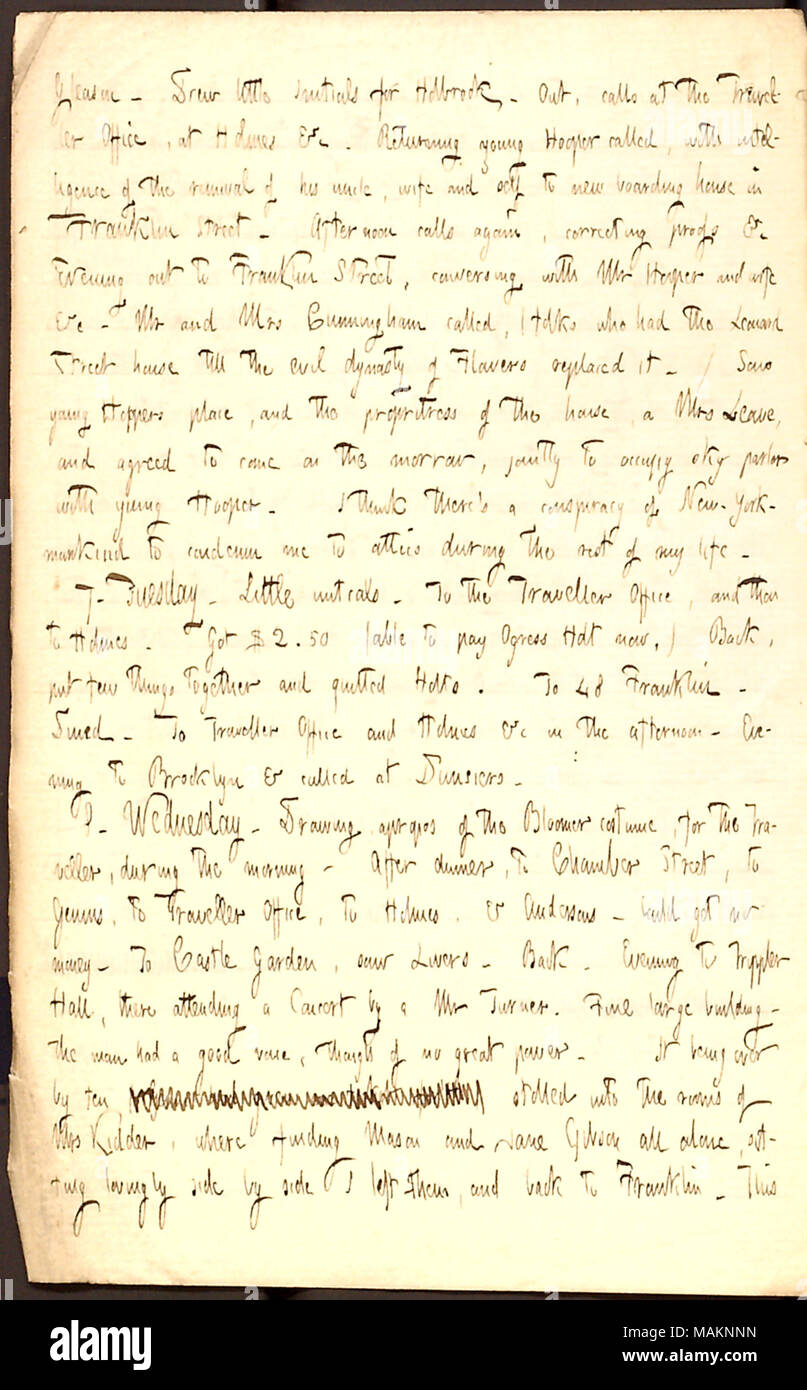 Gleason - Drew little initials for Holbrook. Out, calls at the Travel-
ler Office, at Holmes &c. Returning young Hooper called, with intel-
ligence of the removal of his uncle, wife and self to new boarding house in
Franklin Street - Afternoon calls again, correcting proofs &c
Evening out to Franklin Street, conversing with Mr Hooper and wife
&c - Mr and Mrs Cunningham called, (folks who had the Leonard
Street house till the evil dynasty of Flavers replaced it - ) Saw
young Hoppers place, and the propritress of the house, a Mrs Leave,
and agreed to come on the morrow, jointly to occupy sky parlor
with young Hooper - I think there's a conspiracy of New-York-
mankind to condemn me to attics during the rest of my life -
7 - Tuesday - Little initials - To the Traveller Office, and then
to Holmes. Got $2.50 (able to pay Ogress Holt now.) Back,
put few things together and quitted Holts. To 48 Franklin -
Dined - To Traveller Office and Holmes &c in the afternoon - Eve-
ning to Brooklyn & called at Dunsiers -
Wednesday - Drawing, apropos of the Bloomer costume, for the Tra-
veller, during the morning - After dinner, to Chamber Street, to
Genins, to Traveller Office, to Holmes, & Andersons - Could get no
money - To Castle Garden, saw Livers - Back - Evening to Tryppler
Hall, there attending a Concert by a Mr Turner. Fine large building -
the man had a good voice, though of no great power - It being over
by ten, strolled into the rooms of
Mrs Kidder, where finding Mason and Jane Gibson all alone, sit-
ting lovingly side by side I left them, and back to Franklin - This
alamy
alamy
Image ID: MAKNNN
www.alamy.com